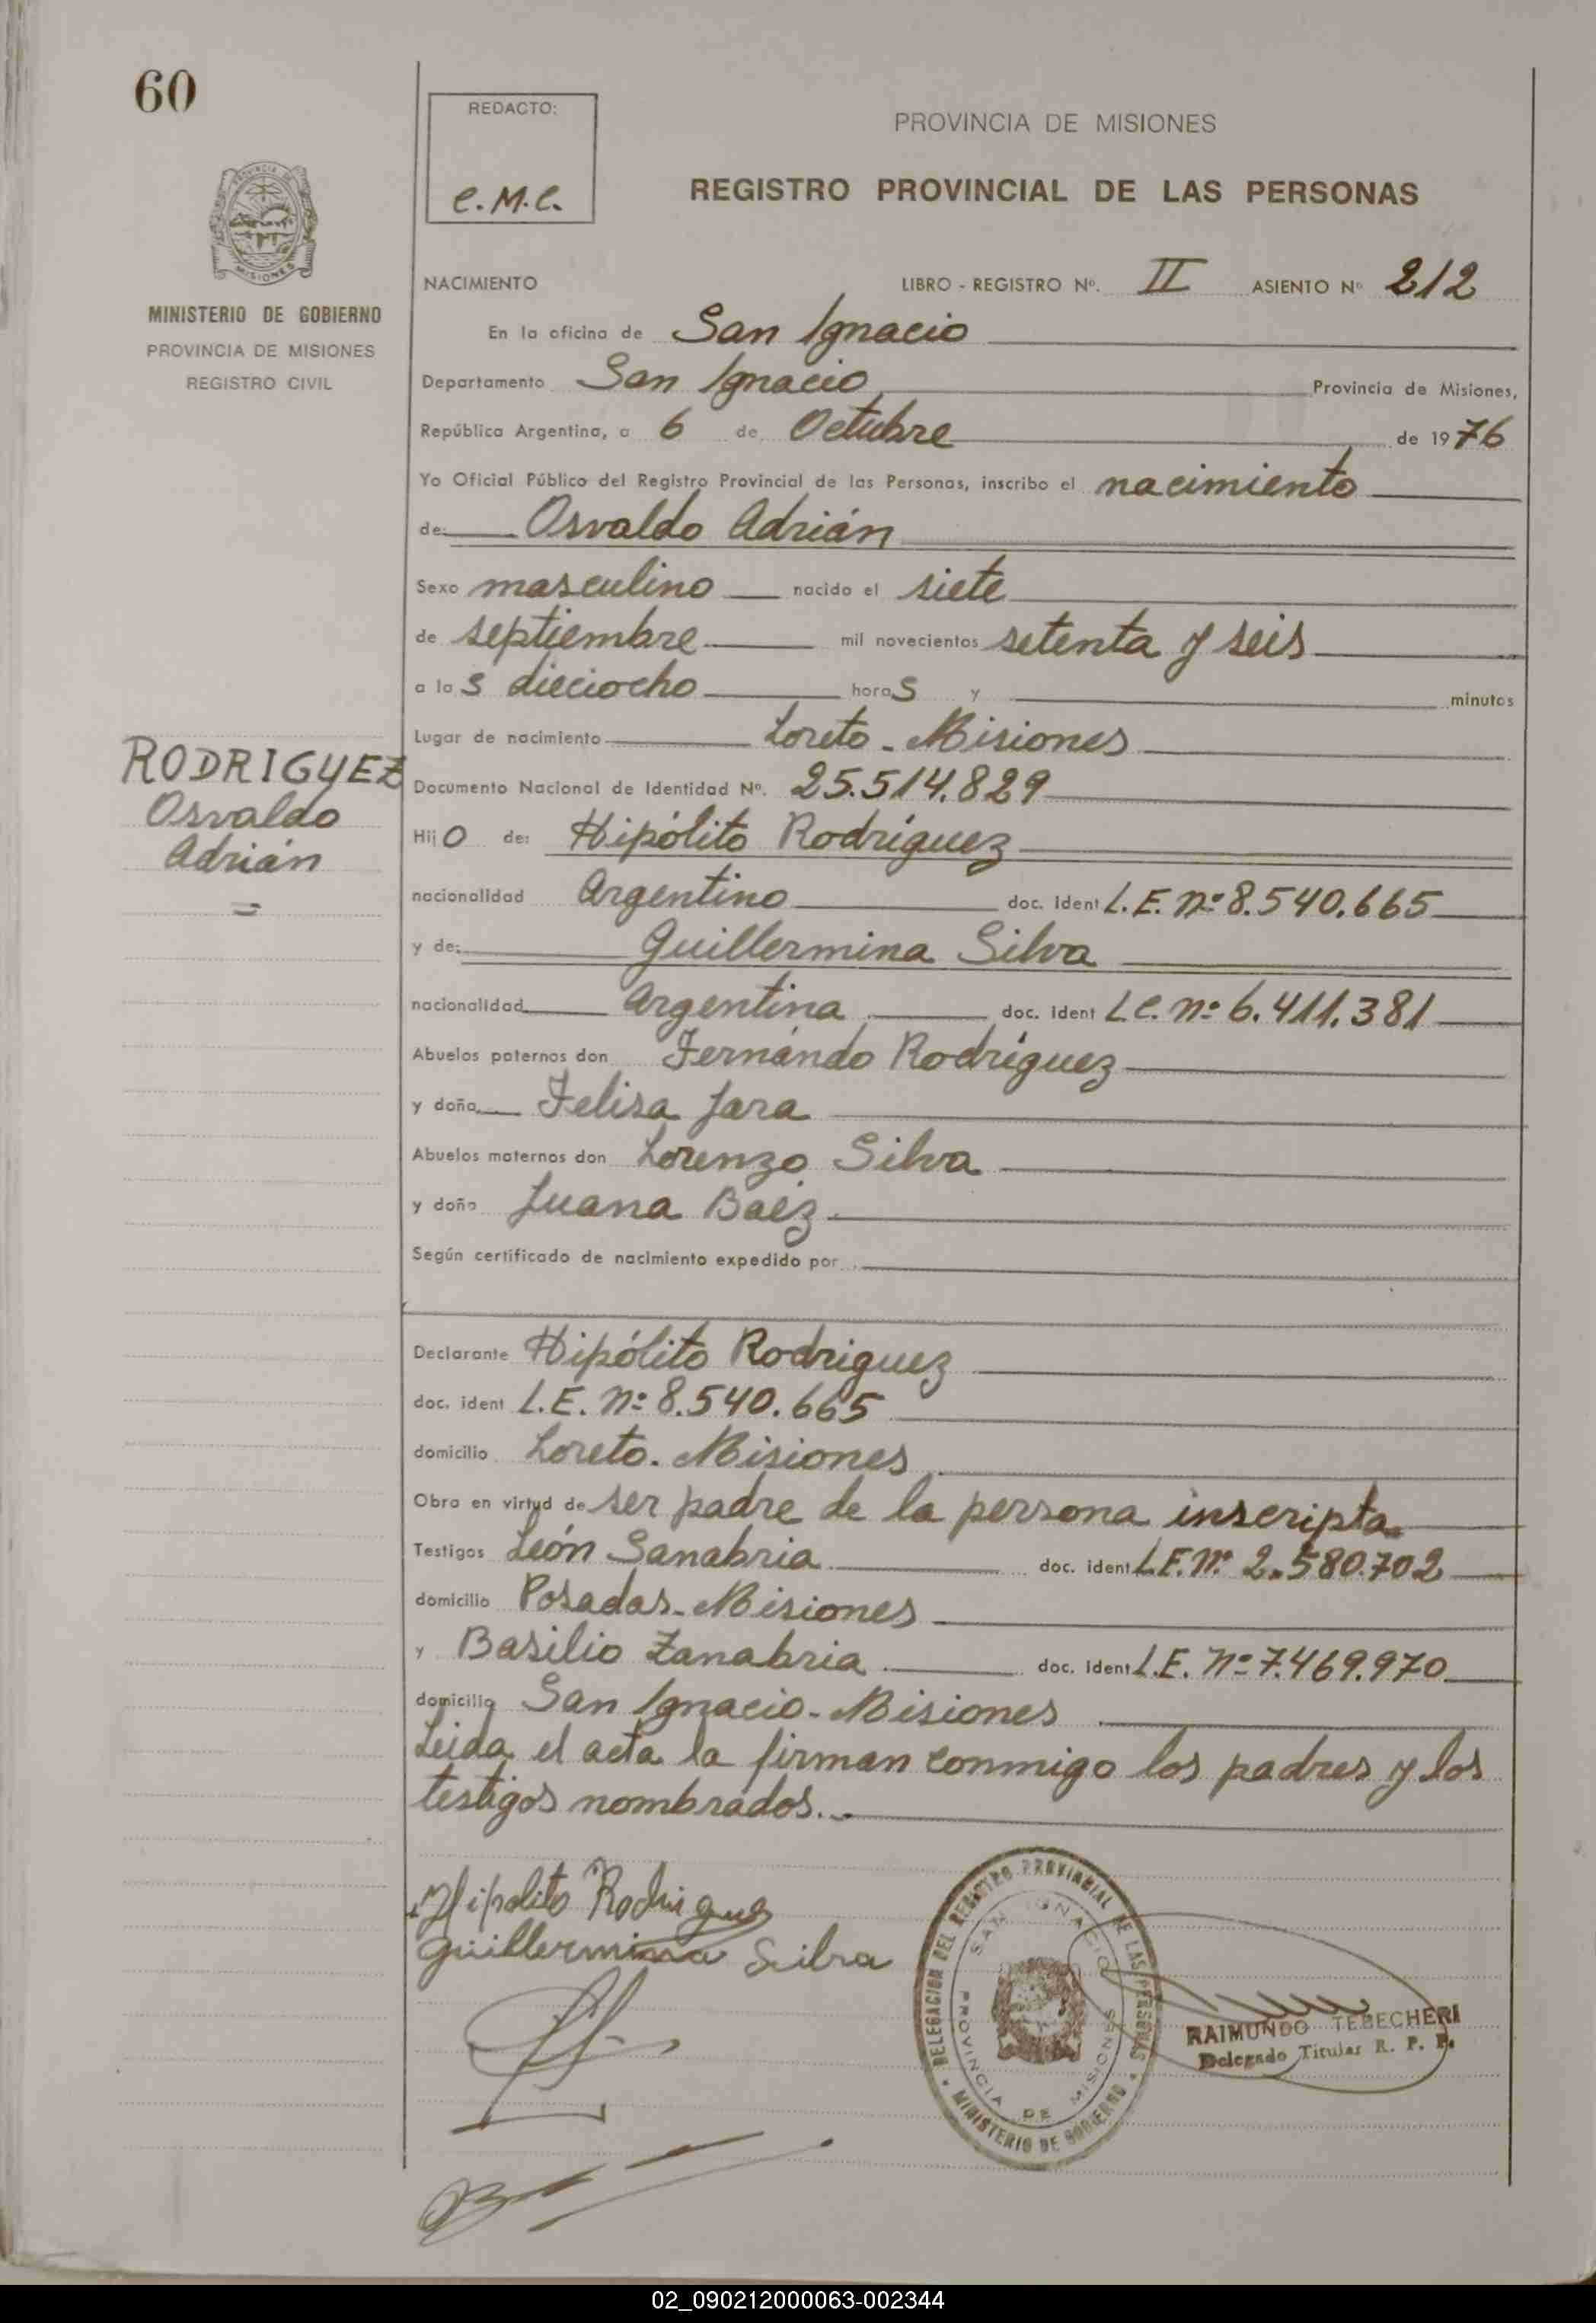 60
REDACTO:
C.M.C.
PROVINCIA DE MISIONES
REGISTRO PROVINCIAL DE LAS PERSONAS
MINISTERIO DE GOBIERNO
PROVINCIA DE MISIONES
REGISTRO CIVIL
NACIMIENTO LIBRO - REGISTRO Nº. II ASIENTO Nº 212
En la oficina de San Ignacio
Departamento San Ignacio Provincia de Misiones,
República Argentina, a 6 de Octubre de 1976
Yo Oficial Público del Registro Provincial de las Personas, inscribo el nacimiento
de: Osvaldo Adrián
Sexo masculino nacido el siete
de septiembre mil novecientos setenta y seis
a las dieciocho horas y minutos
Lugar de nacimiento Loreto - Misiones
RODRIGUEZ
Osvaldo
Adrián
Documento Nacional de Identidad Nº. 25.514.829
Hijo de: Hipólito Rodríguez
nacionalidad Argentino doc. ident L.E. nº 8.540.665
y de: Guillermina Silva
nacionalidad Argentina doc. ident L.C. nº 6.411.381
Abuelos paternos don Fernándo Rodríguez
y doña Felisa Jara
Abuelos maternos don Lorenzo Silva
y doña Juana Baéz
Según certificado de nacimiento expedido por
Declarante Hipólito Rodriguez
doc. ident L.E. nº 8.540.665
domicilio Loreto. Misiones
Obra en virtud de ser padre de la persona inscripta
Testigos León Sanabria doc. ident L.E. Nº 2.580.702
domicilio Posadas - Misiones
y Basilio Zanabria doc. ident L.E. Nº 7.469.970
domicilio San Ignacio - Misiones
Leida el acta la firman conmigo los padres y los
testigos nombrados.
Hipolito Rodriguez
Guillermina Silva
DELEGACION DEL REGISTRO PROVINCIAL DE LAS PERSONAS
SAN IGNACIO
PROVINCIA DE MISIONES
MINISTERIO DE GOBIERNO
RAIMUNDO TEBECHERI
Delegado Titular R. P. P.
02_090212000063-002344